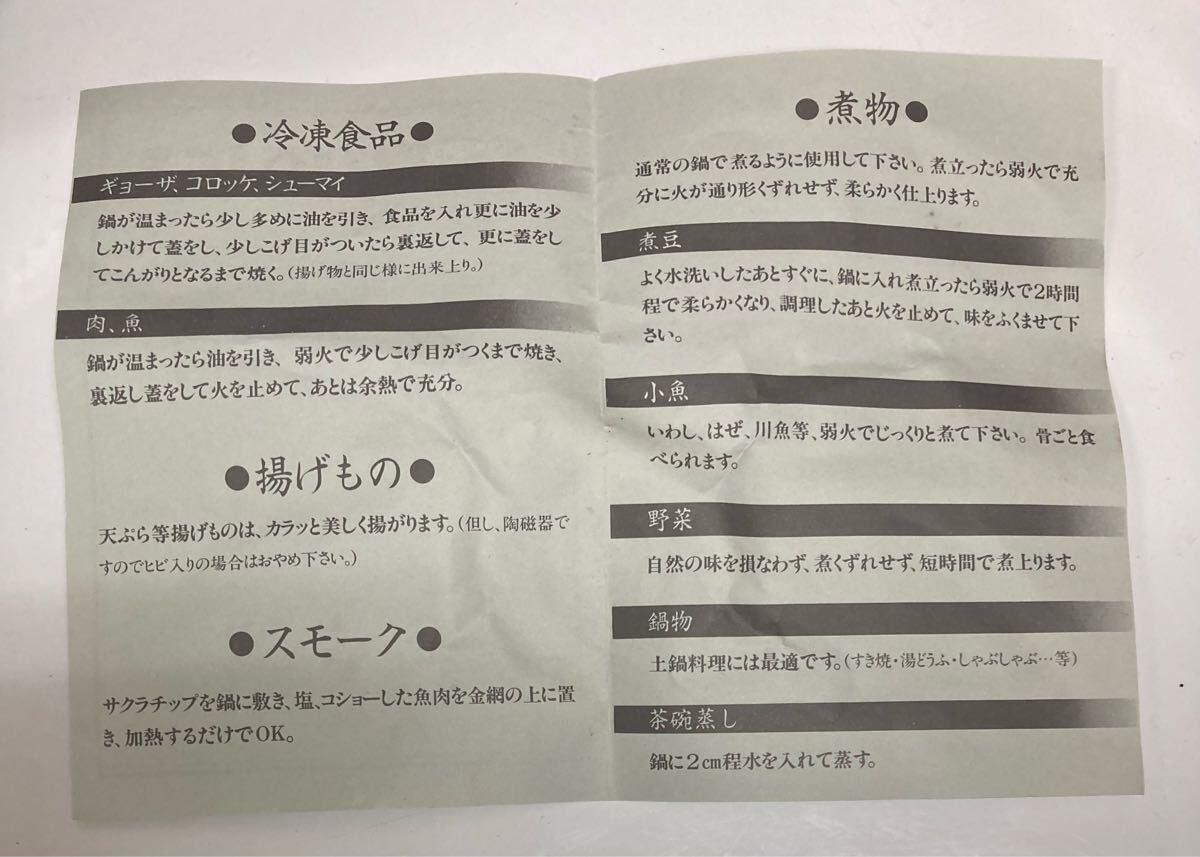 ●冷凍食品●
ギョーザ、コロッケ、シューマイ
鍋が温まったら少し多めに油を引き、食品を入れ更に油を少
しかけて蓋をし、少しこげ目がついたら裏返して、更に蓋をし
てこんがりとなるまで焼く。(揚げ物と同じ様に出来上り。)
肉、魚
鍋が温まったら油を引き、弱火で少しこげ目がつくまで焼き、
裏返し蓋をして火を止めて、あとは余熱で充分。
●揚げもの●
天ぷら等揚げものは、カラッと美しく揚がります。(但し、陶磁器で
すのでヒビ入りの場合はおやめ下さい。)
●スモーク●
サクラチップを鍋に敷き、塩、コショーした魚肉を金網の上に置
き、加熱するだけでOK。
●煮物●
通常の鍋で煮るように使用して下さい。煮立ったら弱火で充
分に火が通り形くずれせず、柔らかく仕上ります。
煮豆
よく水洗いしたあとすぐに、鍋に入れ煮立ったら弱火で2時間
程で柔らかくなり、調理したあと火を止めて、味をふくませて下
さい。
小魚
いわし、はぜ、川魚等、弱火でじっくりと煮て下さい。骨ごと食
べられます。
野菜
自然の味を損なわず、煮くずれせず、短時間で煮上ります。
鍋物
土鍋料理には最適です。(すき焼・湯どうふ・しゃぶしゃぶ…等)
茶碗蒸し
鍋に2cm程水を入れて蒸す。